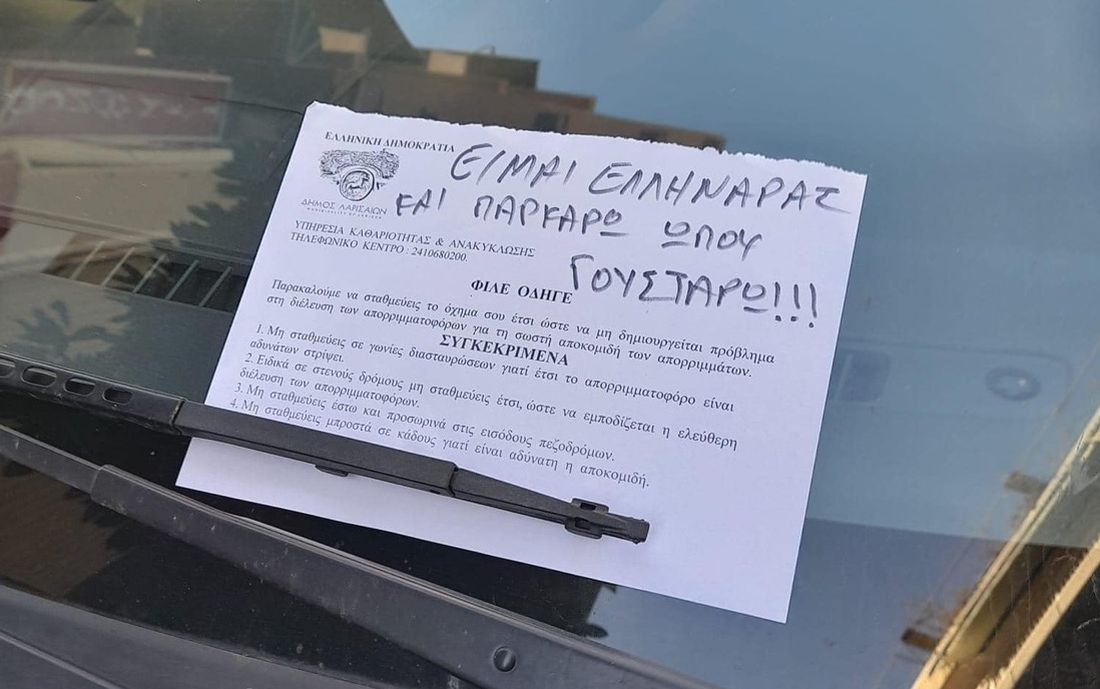 ΕΛΛΗΝΙΚΗ ΔΗΜΟΚΡΑΤΙΑ
ΔΗΜΟΣ ΛΑΡΙΣΑΙΩΝ
MUNICIPALITY OF LARISSA
ΥΠΗΡΕΣΙΑ ΚΑΘΑΡΙΟΤΗΤΑΣ & ΑΝΑΚΥΚΛΩΣΗΣ
ΤΗΛΕΦΩΝΙΚΟ ΚΕΝΤΡΟ : 2410680200.
ΕΙΜΑΙ ΕΛΛΗΝΑΡΑΣ
ΚΑΙ ΠΑΡΚΑΡΩ ΩΠΟΥ
ΓΟΥΣΤΑΡΩ!!!
ΦΙΛΕ ΟΔΗΓΕ
Παρακαλούμε να σταθμεύεις το όχημα σου έτσι ώστε να μη δημιουργείται πρόβλημα
στη διέλευση των απορριμματοφόρων για τη σωστή αποκομιδή των απορριμμάτων.
ΣΥΓΚΕΚΡΙΜΕΝΑ
1. Μη σταθμεύεις σε γωνίες διασταυρώσεων γιατί έτσι το απορριμματοφόρο είναι
αδυνάτων στρίψει.
2. Ειδικά σε στενούς δρόμους μη σταθμεύεις έτσι, ώστε να εμποδίζεται η ελεύθερη
διέλευση των απορριμματοφόρων.
3. Μη σταθμεύεις έστω και προσωρινά στις εισόδους πεζοδρόμων.
4. Μη σταθμεύεις μπροστά σε κάδους γιατί είναι αδύνατη η αποκομιδή.